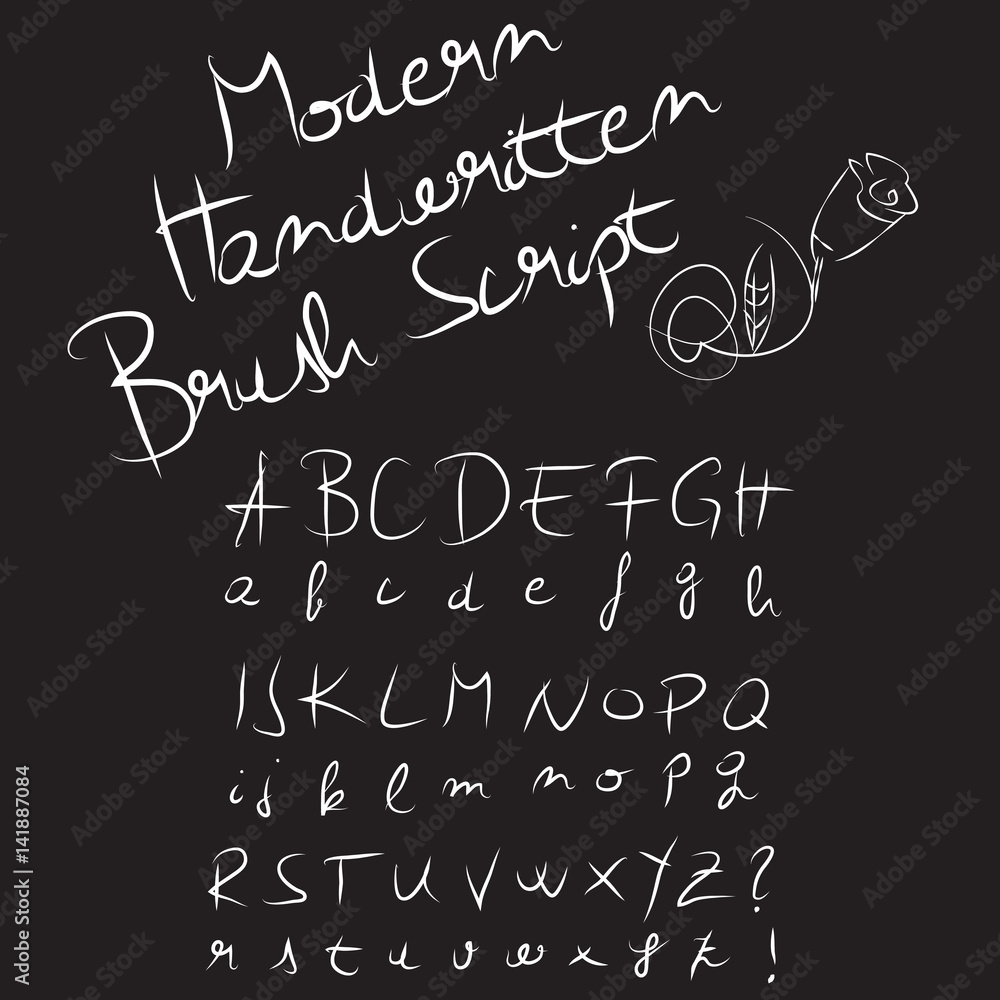 Modern
Handwritten
Brush Script
A B C D E F G H
a b c d e f g h
I J K L M N O P Q
i j k l m n o p q
R S T U V W X Y Z ?
r s t u v w x y z !
Adobe Stock | #141887084